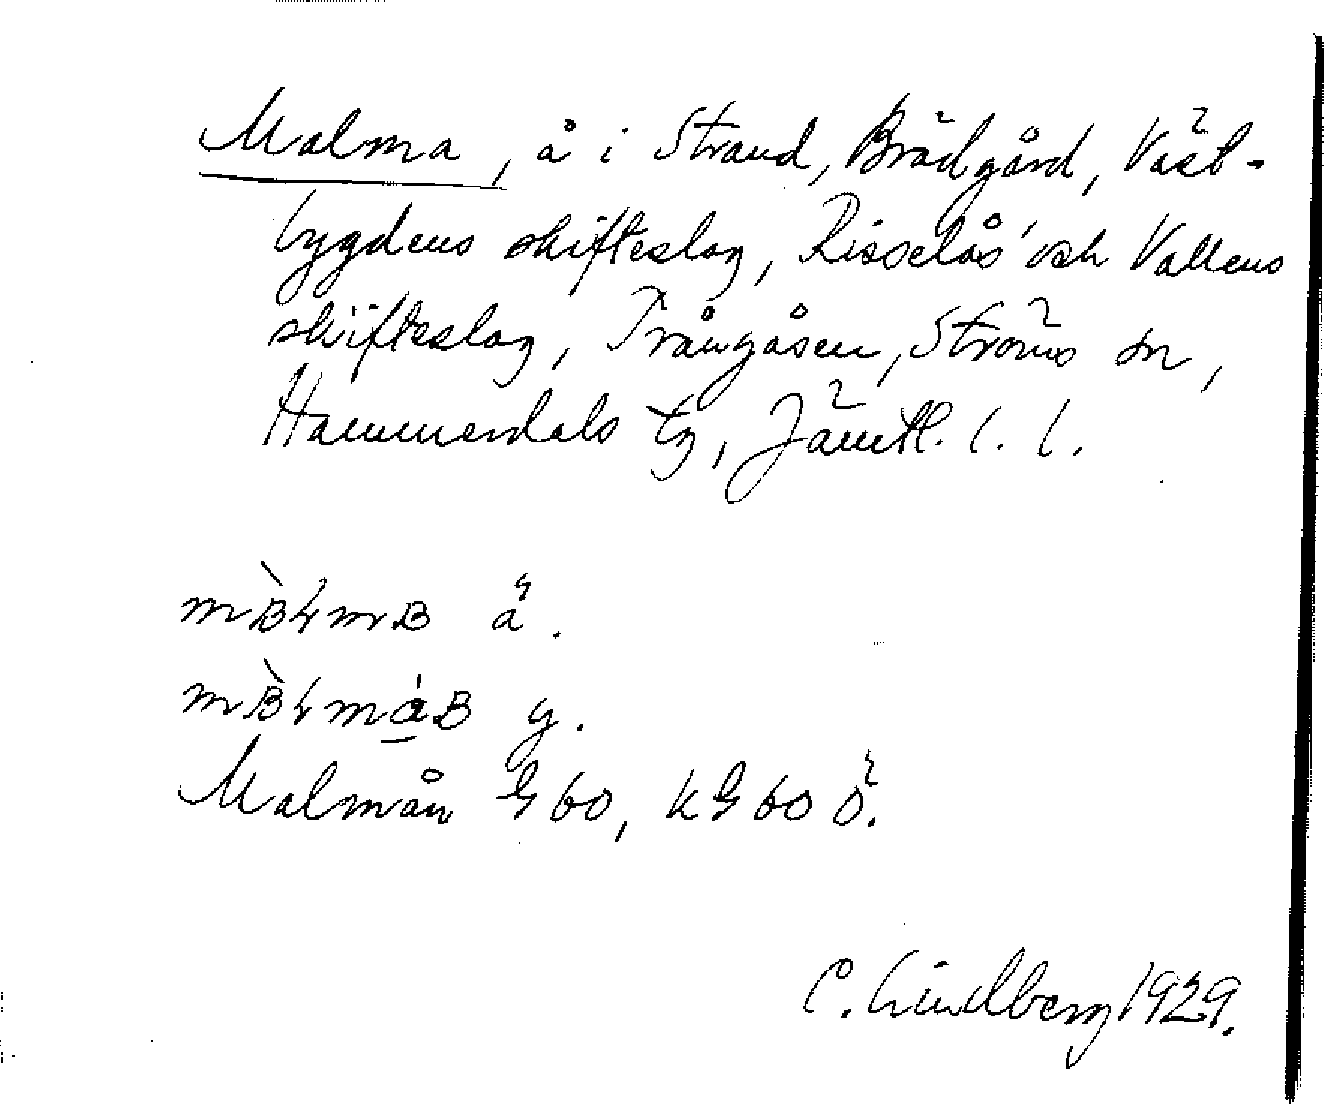 Malma, å i Strand, Brädgård, Väst-
bygdens skifteslag, Risselås och Vallens
skifteslag, Trångåsen, Ströms sn,
Hammerdals tg, Jämtl. l. l.
å.
g.
Malmån G 60, k G 60 ö.
C. Lindberg 1929.